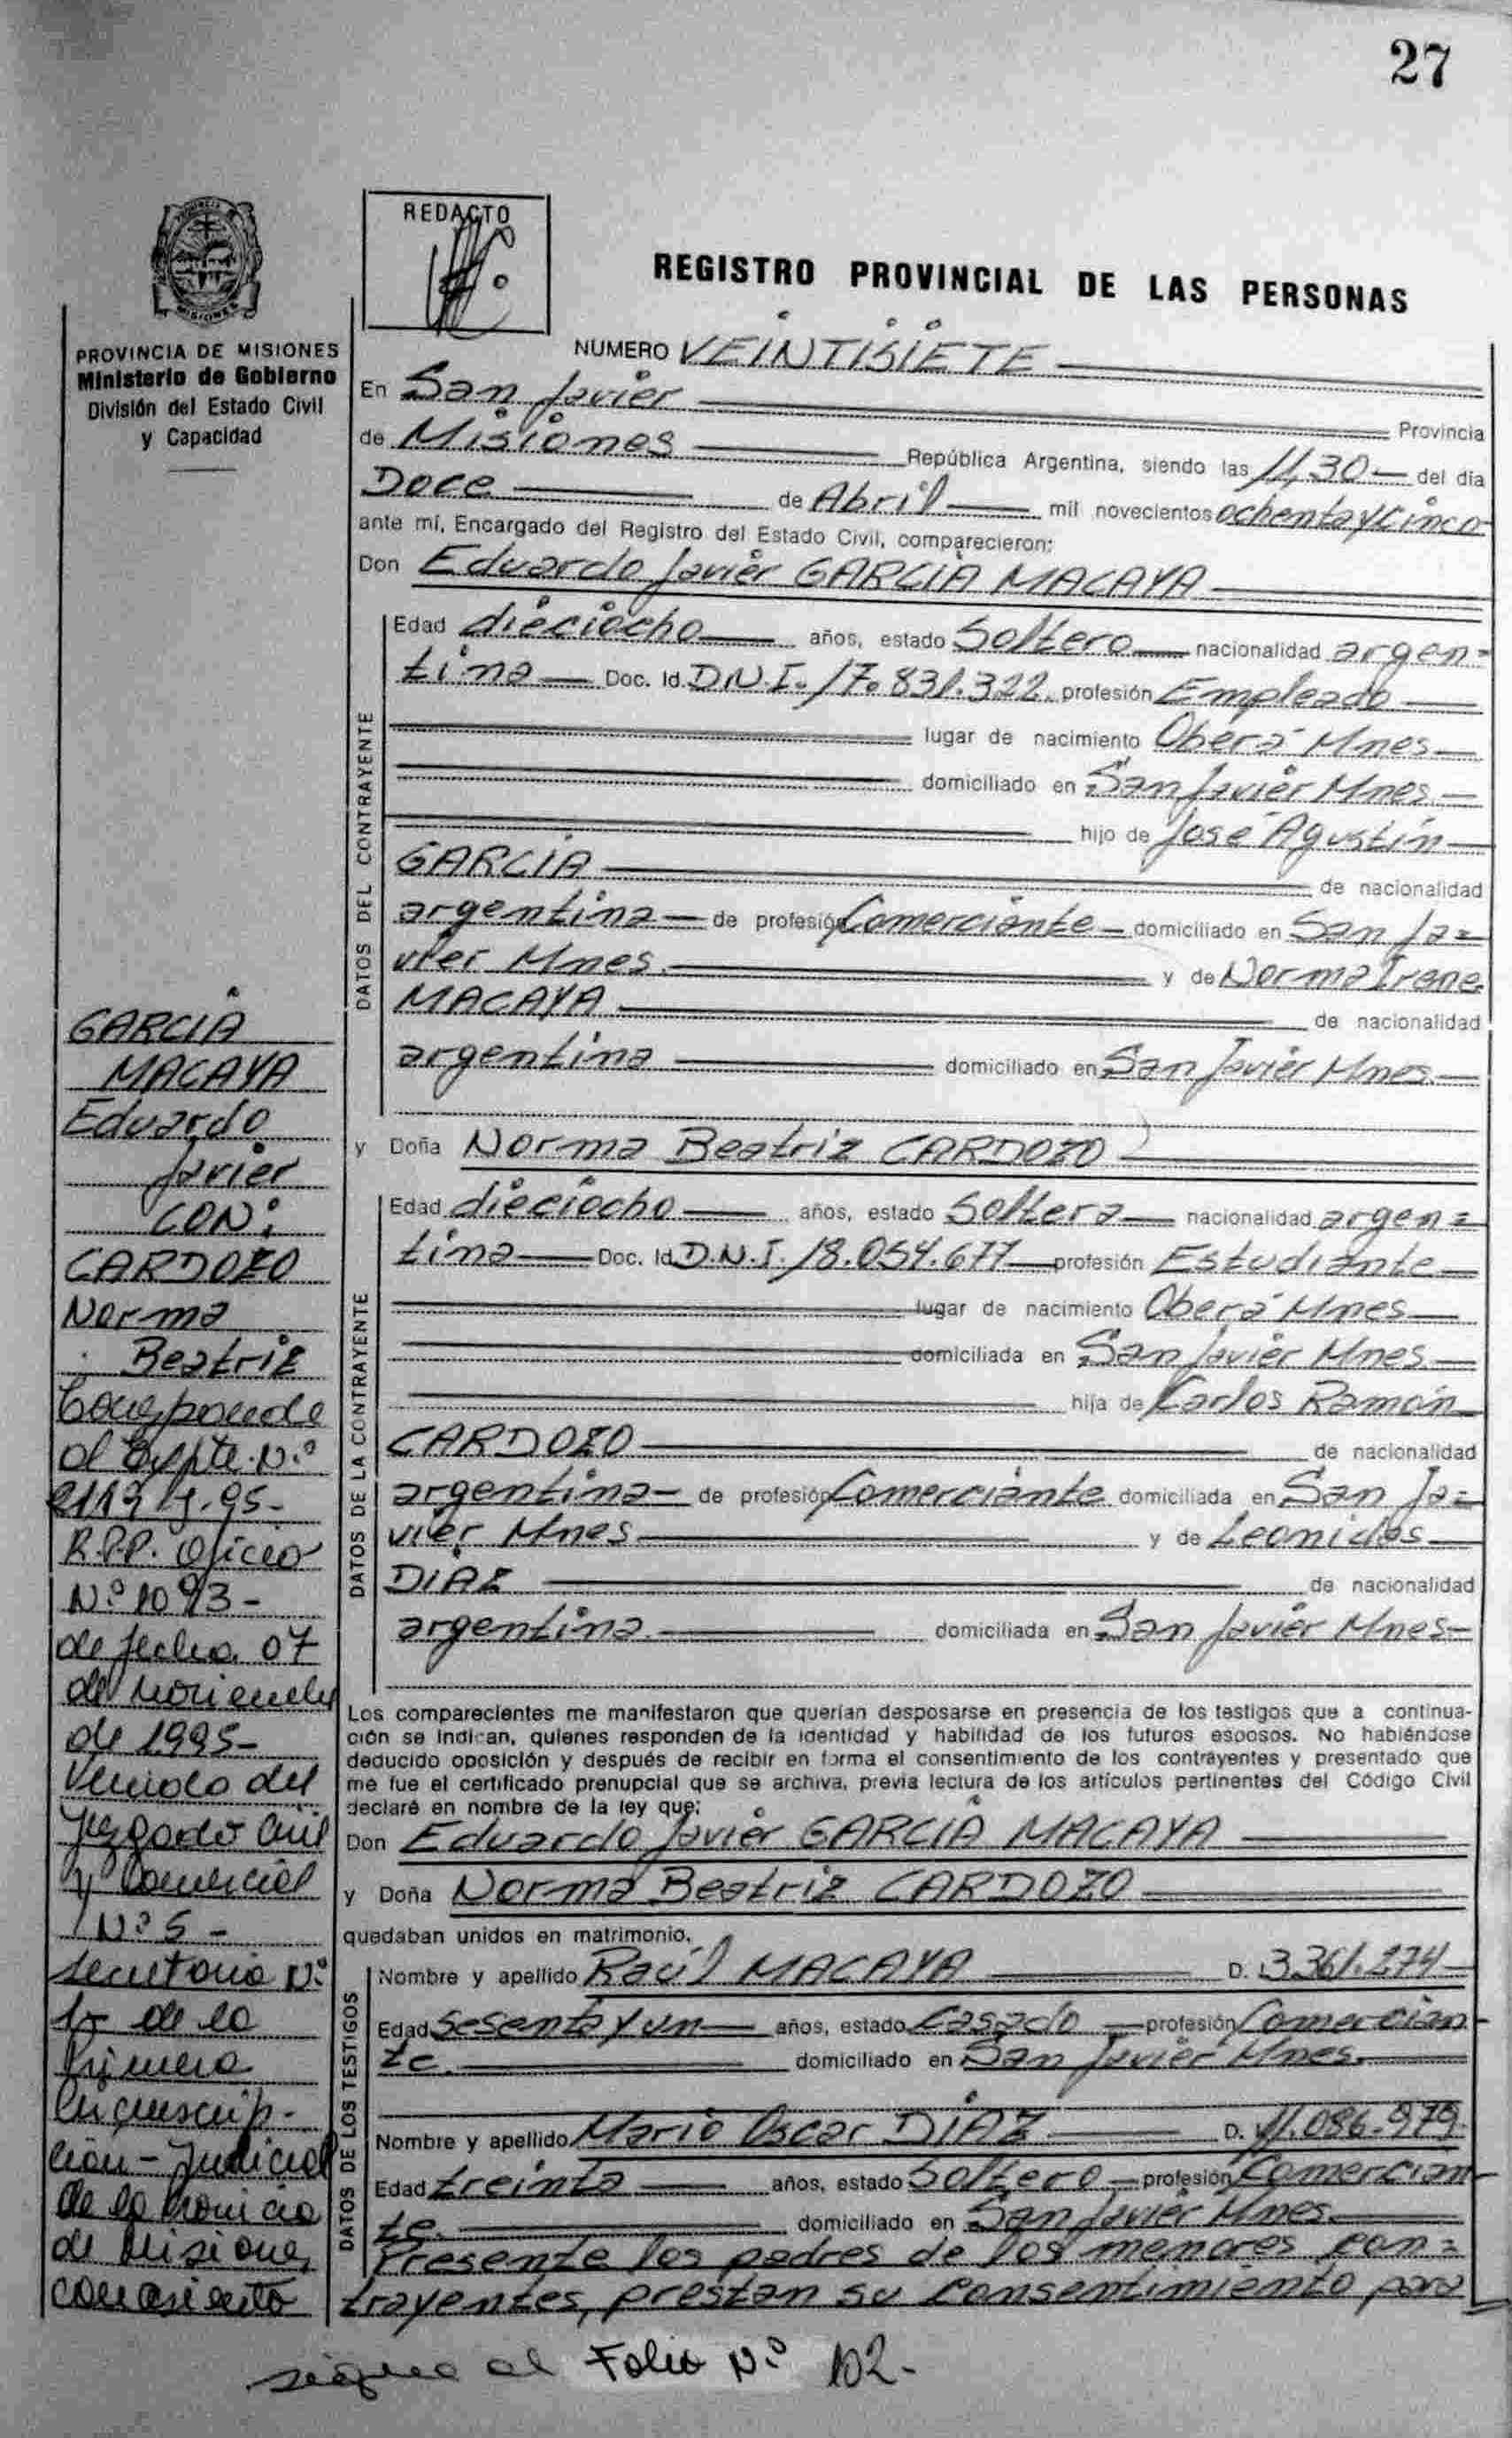 27
REDACTO
REGISTRO PROVINCIAL DE LAS PERSONAS
PROVINCIA DE MISIONES
Ministerio de Gobierno
División del Estado Civil
y Capacidad
NUMERO VEINTISIETE
En San Javier Provincia
de Misiones República Argentina, siendo las 11,30 del día
Doce de Abril mil novecientos ochenta y cinco
ante mí, Encargado del Registro del Estado Civil, comparecieron:
Don Eduardo Javier GARCIA MACAYA
DATOS DEL CONTRAYENTE
Edad dieciocho años, estado Soltero nacionalidad argen=
tina Doc. Id. D.N.I. 17.831.322. profesión Empleado
lugar de nacimiento Oberá Mnes
domiciliado en San Javier Mnes
hijo de José Agustín
GARCIA de nacionalidad
argentina de profesión Comerciante domiciliado en San Ja=
vier Mnes. y de Norma Irene
MACAYA de nacionalidad
argentina domiciliado en San Javier Mnes.
y Doña Norma Beatriz CARDOZO
DATOS DE LA CONTRAYENTE
Edad dieciocho años, estado Soltera nacionalidad argen=
tina Doc. Id. D.N.I. 18.054.677 profesión Estudiante
lugar de nacimiento Oberá Mnes
domiciliada en San Javier Mnes
hija de Carlos Ramón
CARDOZO de nacionalidad
argentina de profesión Comerciante domiciliada en San Ja=
vier Mnes y de Leonidas
DIAZ de nacionalidad
argentina domiciliada en San Javier Mnes
Los comparecientes me manifestaron que querían desposarse en presencia de los testigos que a continua-
ción se indican, quienes responden de la identidad y habilidad de los futuros esposos. No habiéndose
deducido oposición y después de recibir en forma el consentimiento de los contrayentes y presentado que
me fue el certificado prenupcial que se archiva, previa lectura de los artículos pertinentes del Código Civil
declaré en nombre de la ley que:
Don Eduardo Javier GARCIA MACAYA
y Doña Norma Beatriz CARDOZO
quedaban unidos en matrimonio.
DATOS DE LOS TESTIGOS
Nombre y apellido Raúl MACAYA D. 3.361.274
Edad Sesenta y un años, estado Casado profesión Comercian
te. domiciliado en San Javier Mnes.
Nombre y apellido Mario Oscar DIAZ D. 11.086.979
Edad treinta años, estado Soltero profesión Comercian
te. domiciliado en San Javier Mnes.
Presente los padres de los menores con=
trayentes, prestan su consentimiento para
GARCIA
MACAYA
Eduardo
Javier
CON:
CARDOZO
Norma
Beatriz
Corresponde
al Expte. N°
95-
R.P.P. Oficio
N° 1093-
de fecha 07
de noviembre
de 1995-
Venido del
Juzgado Civil
y Comercial
N° 5-
Secretaria N°
1 de la
Primera
Circunscrip-
ción - Judicial
de la Provincia
de Misiones
con asiento
sigue al Folio N° 102-